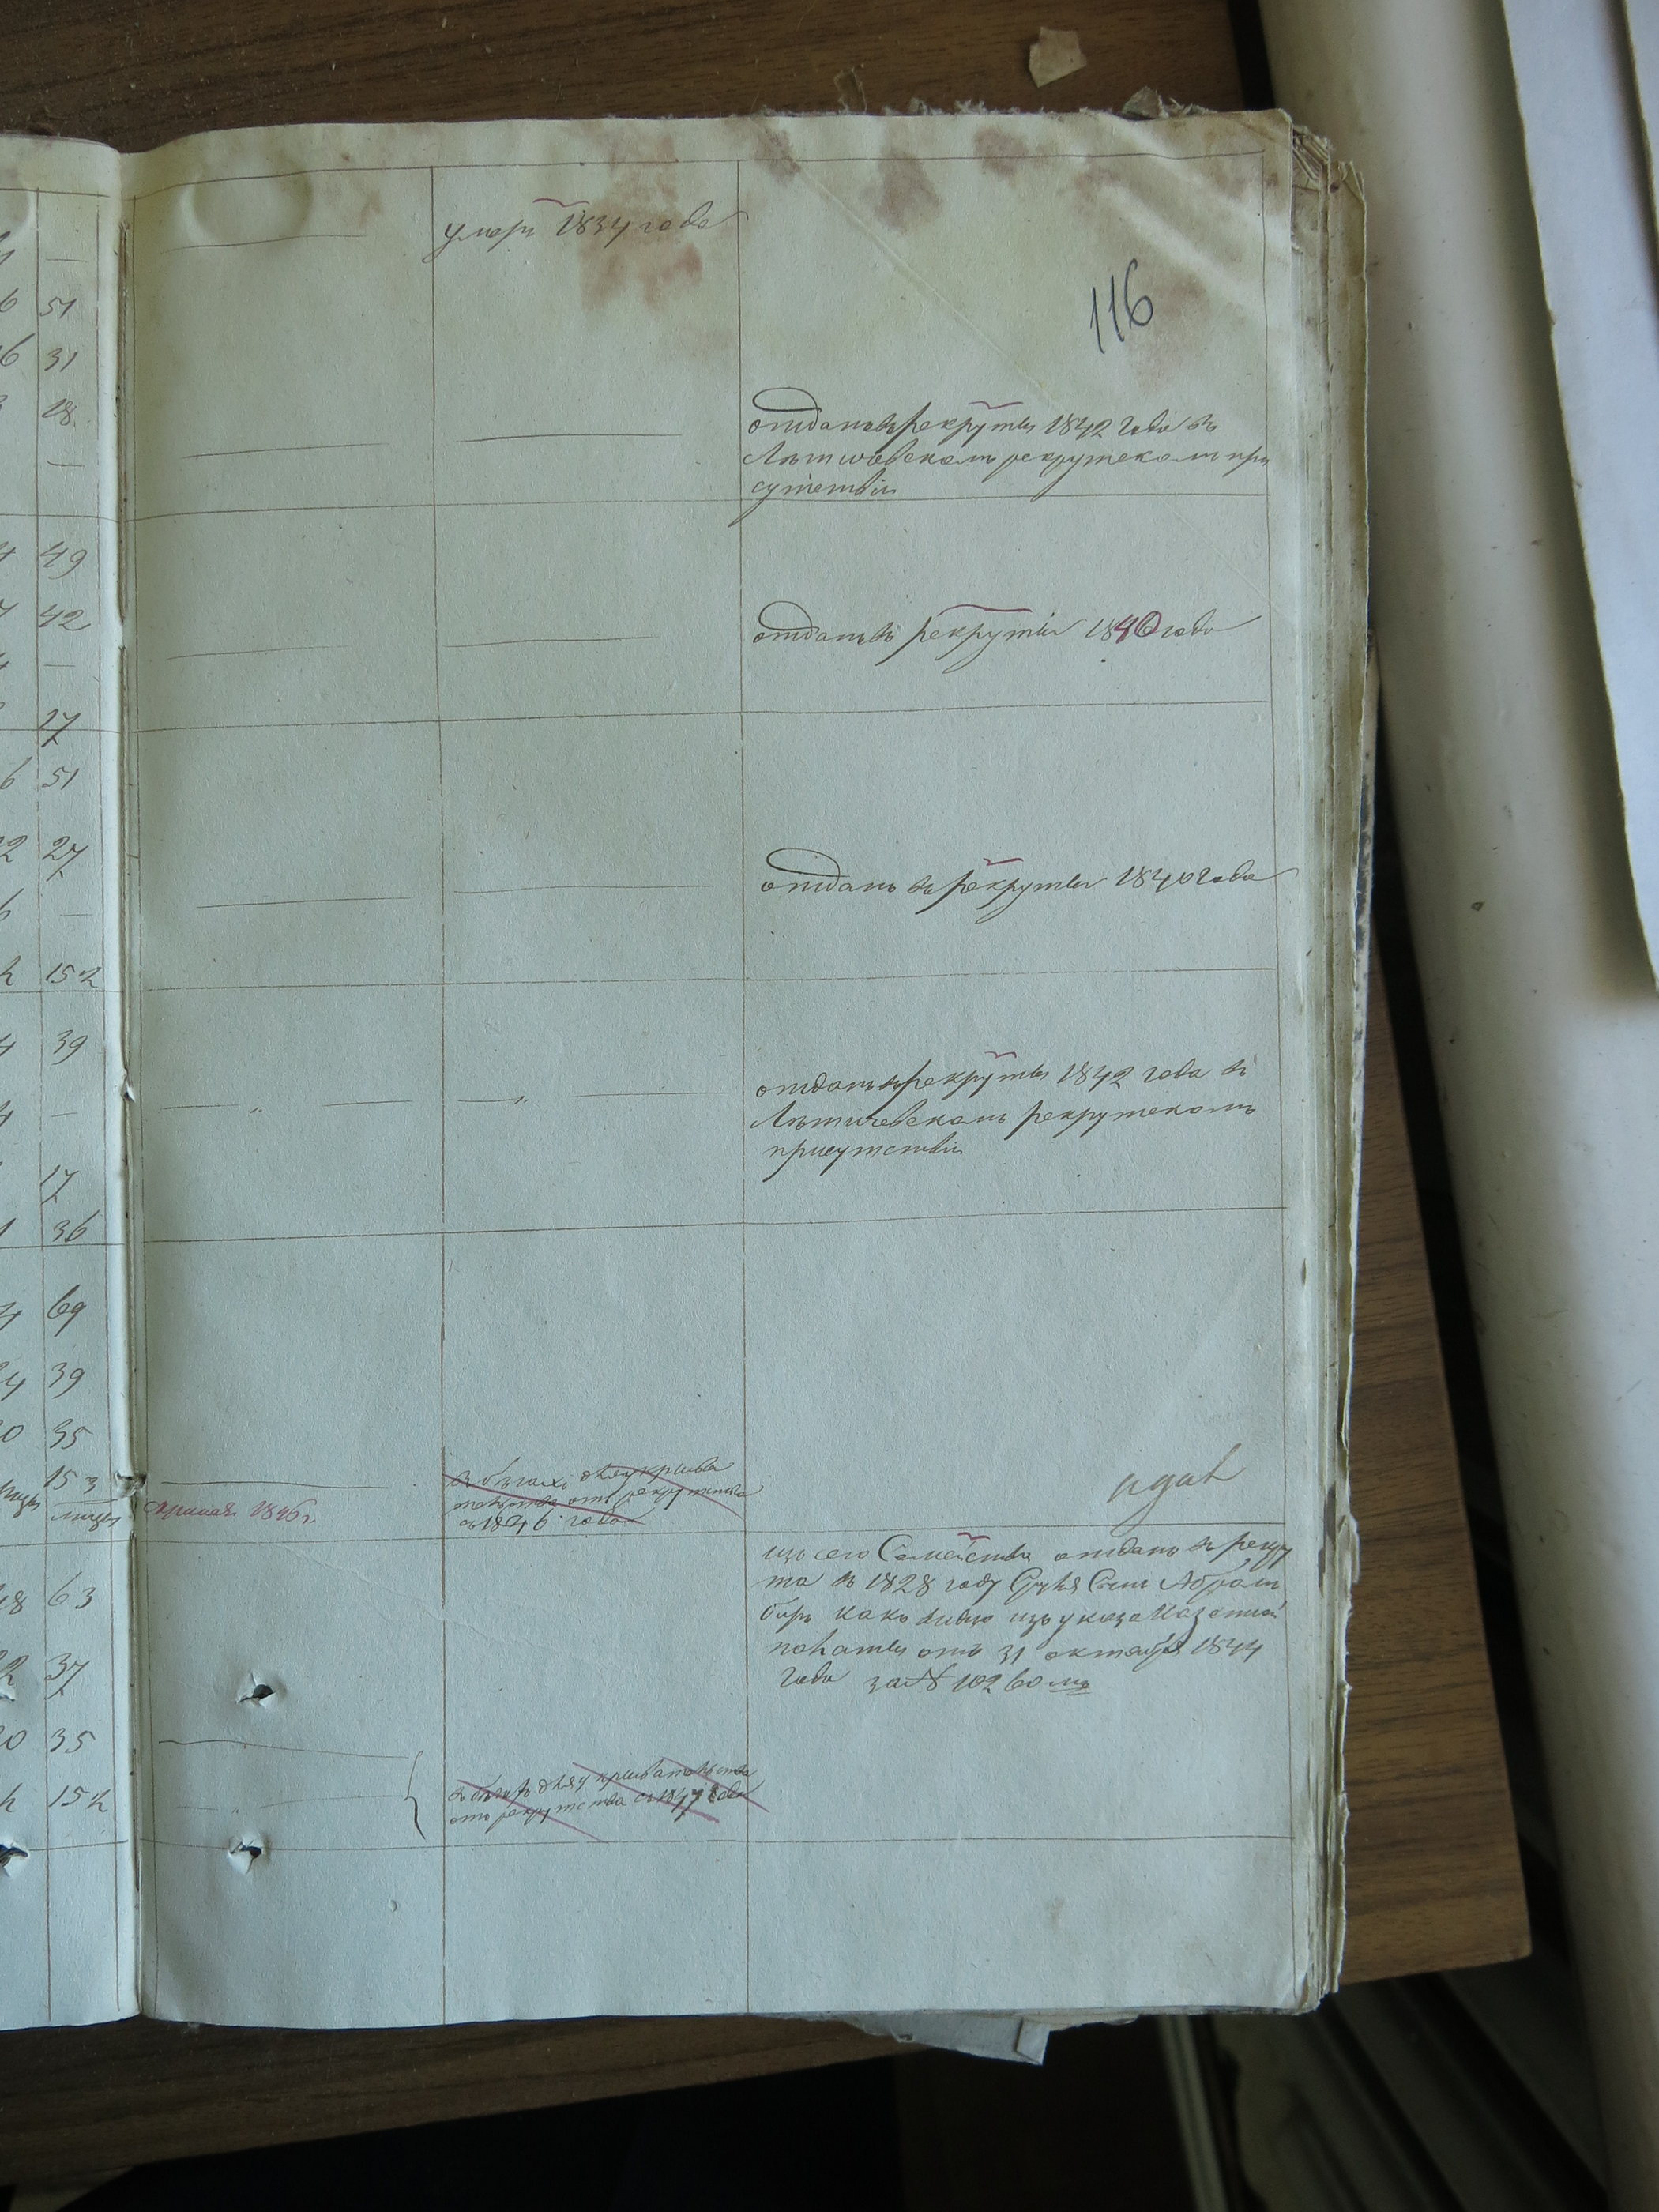 умеръ 1834 года
116
51
31
18
отданъ въ рекруты 1842 года въ
Летичевскомъ рекрутскомъ при
сутствіи
49
42
отданъ въ рекруты 1840 года
17
51
27
отданъ въ рекруты 1840 года
15 ½
39
отданъ въ рекруты 1842 года въ
Летичевскомъ рекрутскомъ
присутствіи
17
36
69
39
35
15 3
въ бегахъ для укрыва
тельства отъ рекрутства
съ 1846 года
1846 г.
изъ сего Семейства отданъ въ рекру
та въ 1828 году Сынъ Абрам
како видно изъ указа Казенной
палаты отъ 31 октября 1844
года за № 10260 мъ
63
37
35
15 ½
въ бегахъ для укрывательства
отъ рекрутства съ 1847 года